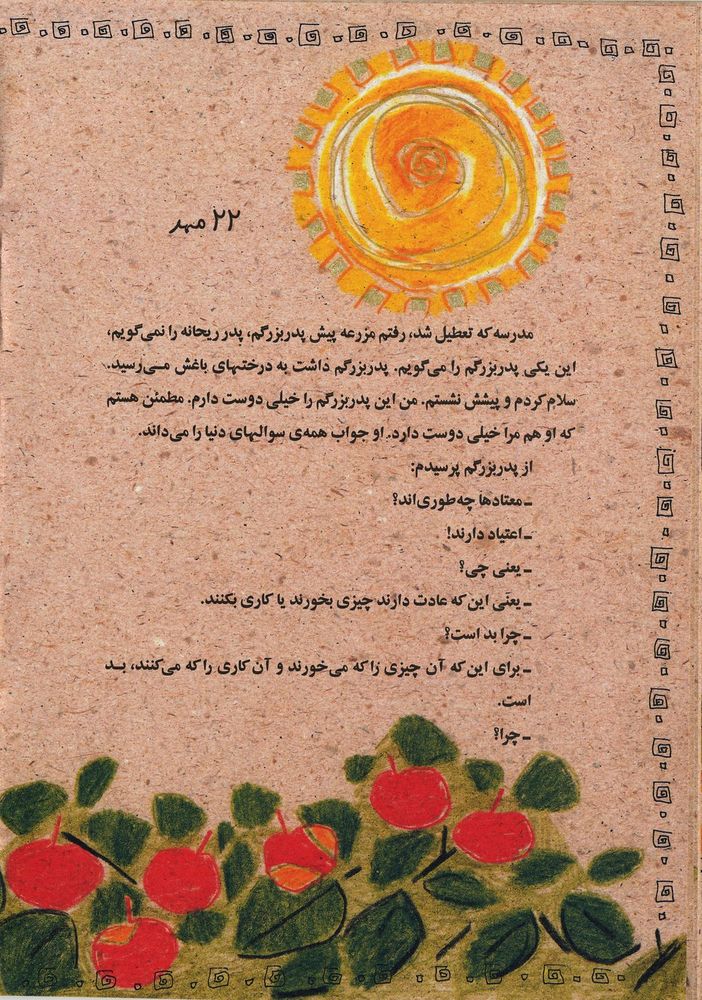 ۲۲ مهر
مدرسه که تعطیل شد، رفتم مزرعه پیش پدربزرگم، پدر ریحانه را نمی‌گویم،
این یکی پدربزرگم را می‌گویم. پدربزرگم داشت به درختهای باغش مـی‌رسید.
سلام کردم و پیشش نشستم. من این پدربزرگم را خیلی دوست دارم. مطمئن هستم
که او هم مرا خیلی دوست دارد. او جواب همه‌ی سوالهای دنیا را می‌داند.
از پدربزرگم پرسیدم:
ـ معتادها چه‌طوری‌اند؟
ـ اعتیاد دارند!
ـ یعنی چی؟
ـ یعنی این که عادت دارند چیزی بخورند یا کاری بکنند.
ـ چرا بد است؟
ـ برای این که آن چیزی را که می‌خورند و آن کاری را که می‌کنند، بـد
است.
ـ چرا؟